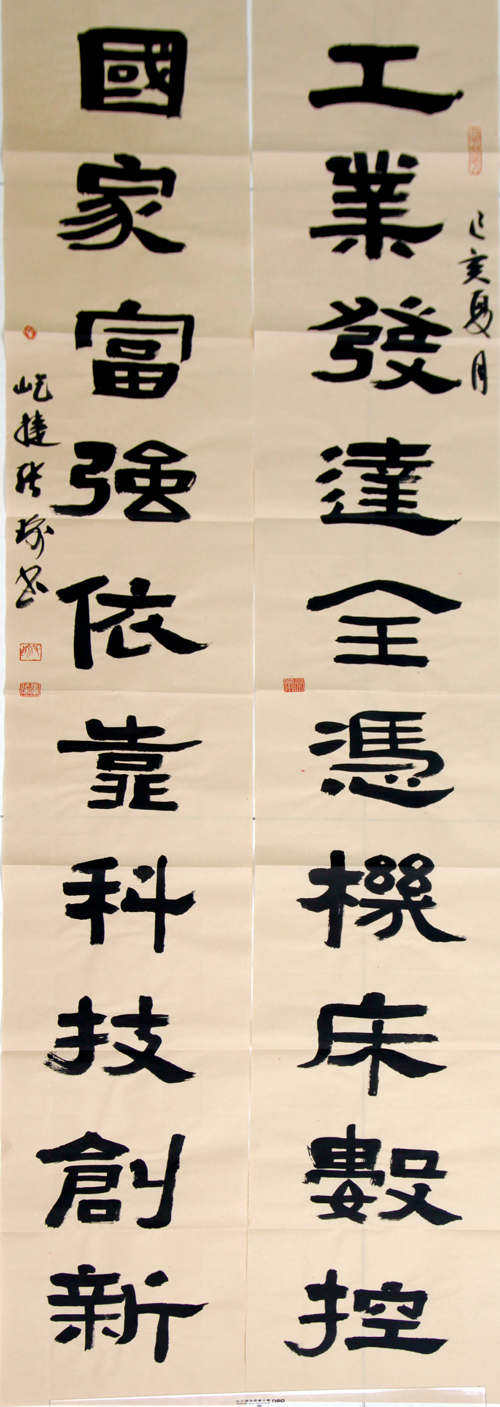 工業發達全憑機床數控
己亥夏月
國家富強依靠科技創新